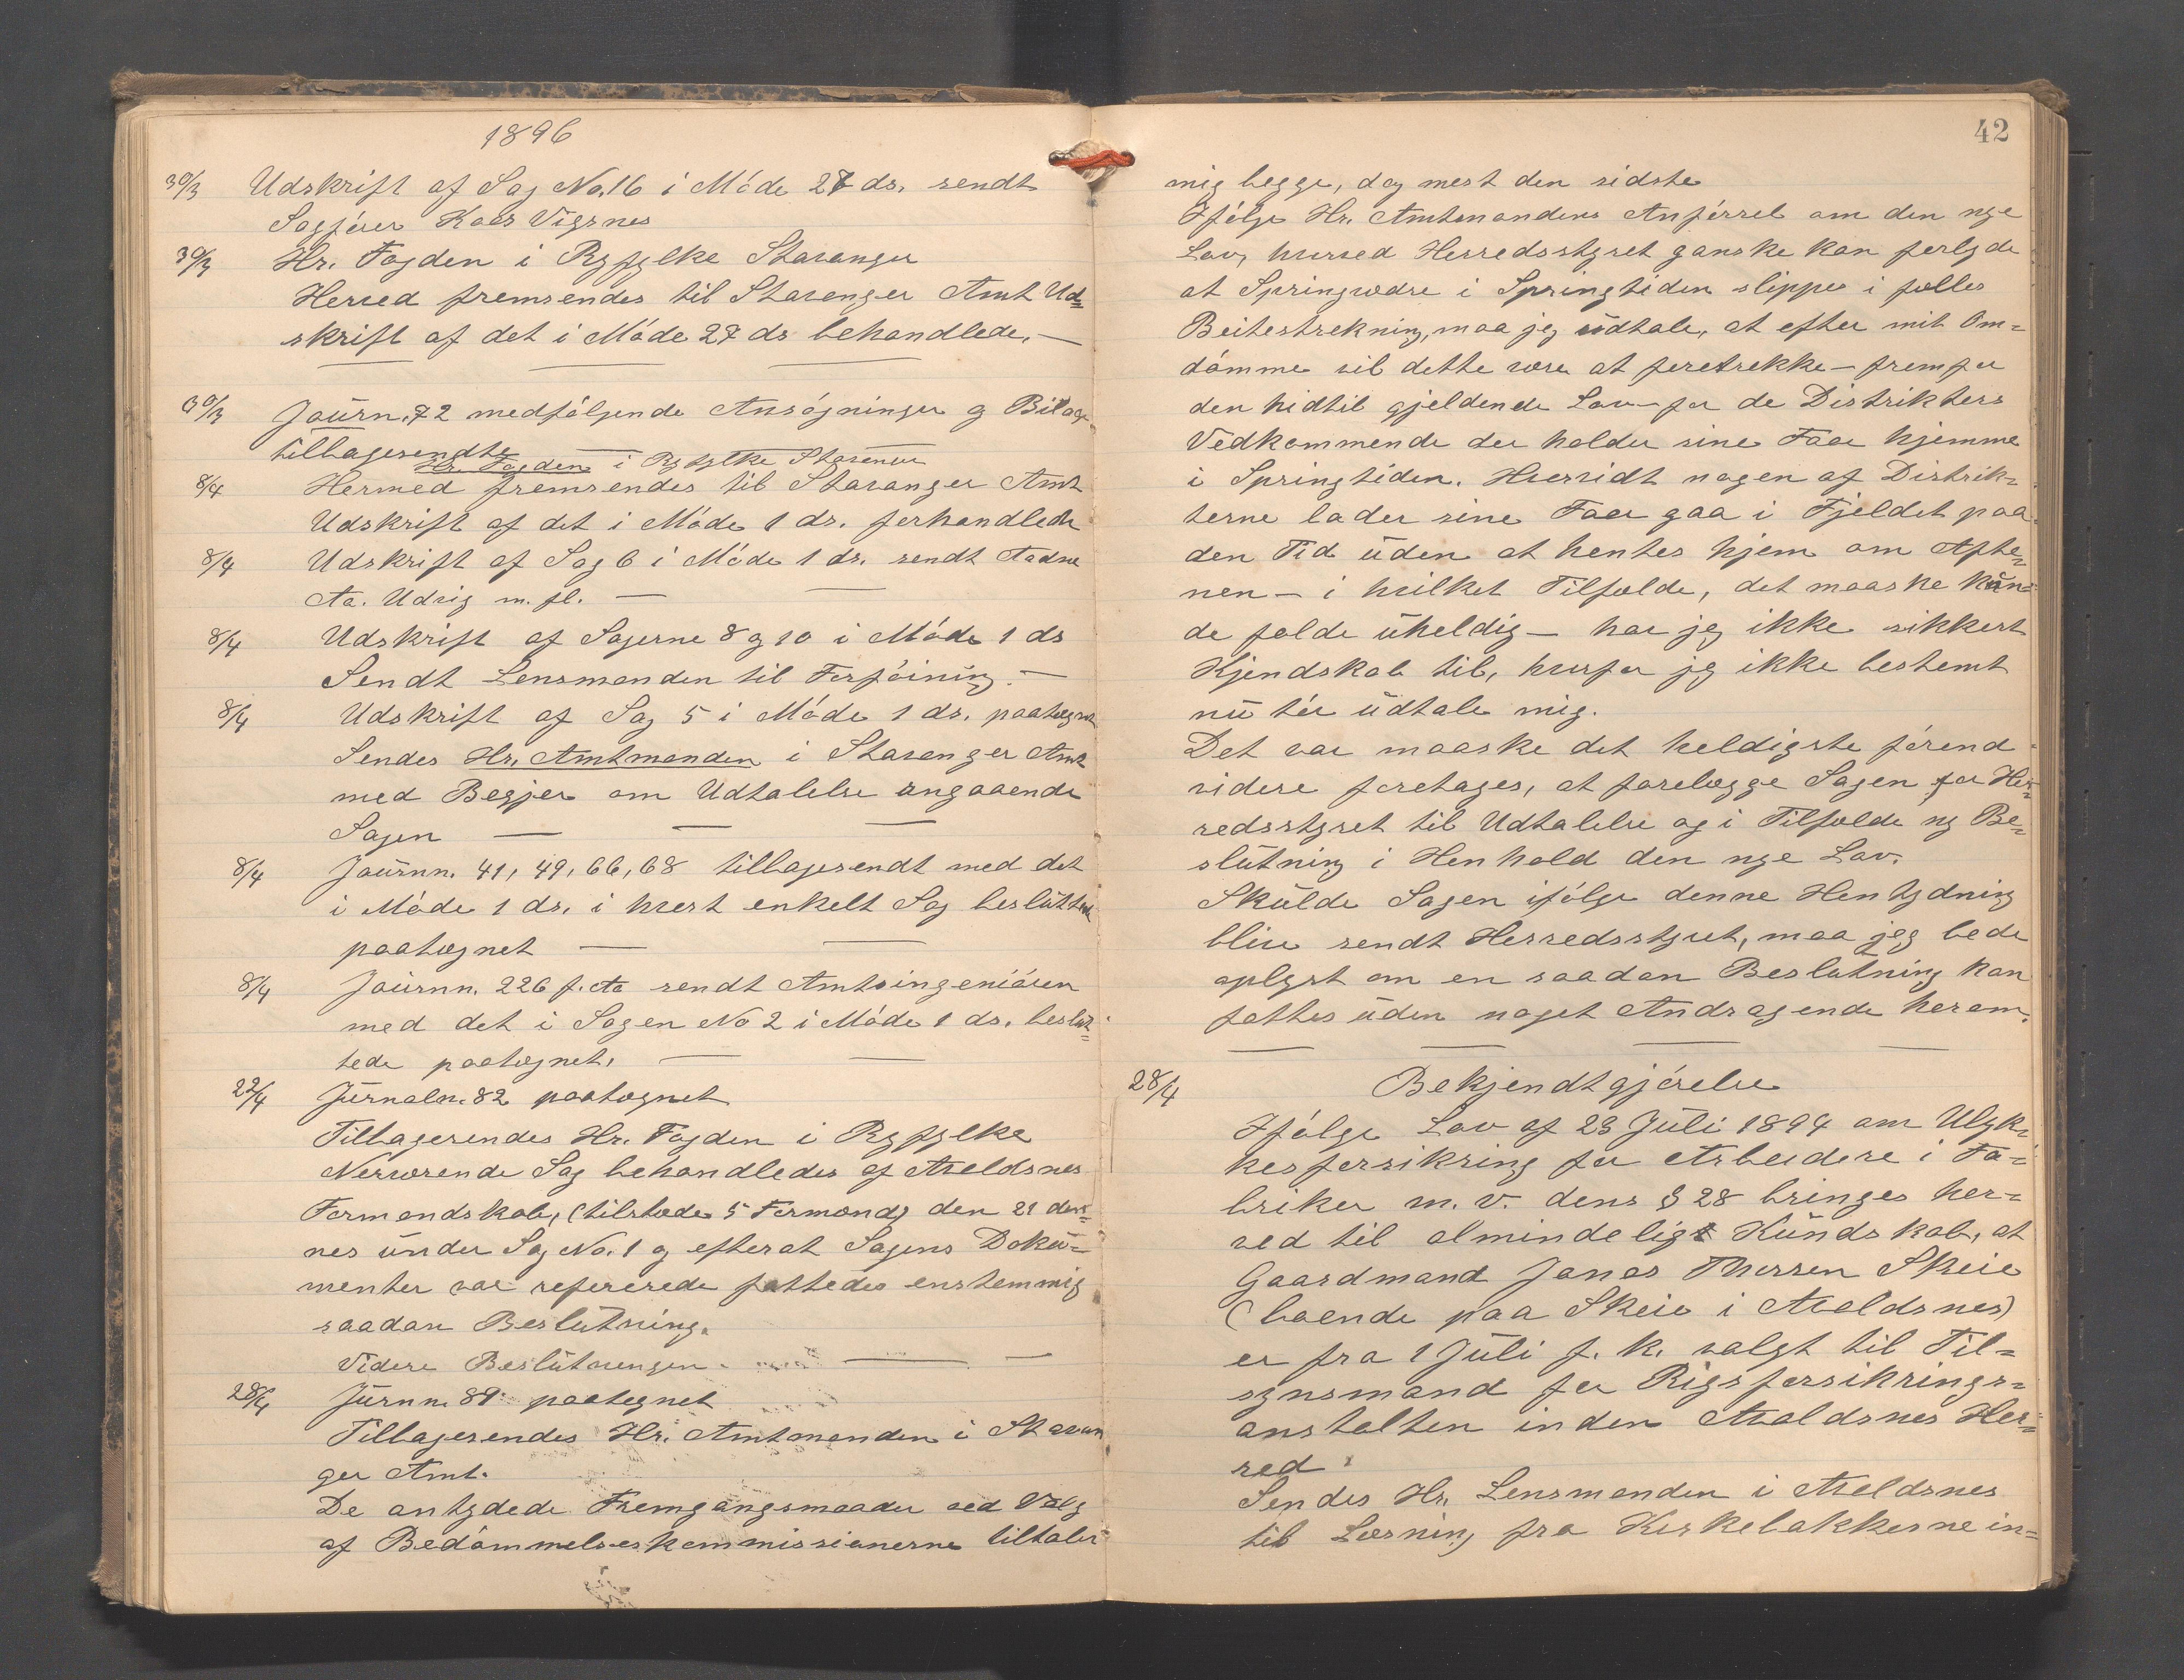 1896
30/3 Udskrift af Sag No. 16 i Møde 27 ds. sendt
Sagfører Kaes Vigsnes
30/3 Hr. Fogden i Ryfylke Stavanger
Herved fremsendes til Stavanger Amt Ud=
skrift af det i Møde 27 ds behandlede. —
30/3 Journ. 72 medfølgende Ansøgninger og Bilage
tilbagesendte
Hr. Fogden i Ryfylke Stavanger
8/4 Hermed fremsendes til Stavanger Amt
Udskrift af det i Møde 1 ds. forhandlede
8/4 Udskrift af Sag 6 i Møde 1 ds. sendt Aadne
Aa. Udvig m. fl. —
8/4 Udskrift af Sagerne 8 og 10 i Møde 1 ds
Sendt Lensmanden til Forføining. —
8/4 Udskrift af Sag 5 i Møde 1 ds. paategnet
Sendes Hr. Amtmanden i Stavanger Amt
med Begjær om Udtalelse angaaende
Sagen —
8/4 Journn. 41, 49, 66, 68 tilbagesendt med det
i Møde 1 ds. i hvert enkelt Sag besluttede
paategnet —
8/4 Journn. 226 f. Aa sendt Amtsingeniøren
med det i Sagen No 2 i Møde 1 ds. beslut=
tede paategnet. —
22/4 Jurnaln. 82 paategnet
Tilbagesendes Hr. Fogden i Ryfylke
Nerværende Sag behandledes af Avaldsnes
Formandskab, (tilstede 5 Formænd) den 21 den=
nes under Sag No. 1 og efterat Sagens Doku=
menter var refererede fattedes enstemmig
saadan Beslutning.
Videre Beslutningen. —
28/4 Jurnn. 89 paategnet
Tilbagesendes Hr. Amtmanden i Stavan
ger Amt.
De antydede Fremgangsmaader ved Valg
af Bedømmelseskommissionerne tiltaler
42
mig begge, dog mest den sidste
Ifølge Hr. Amtmandens Anførsel om den nye
Lov, hvorved Herredsstyret ganske kan forbyde
at Springvædre i Springtiden slippes i fælles
Beitestrekning, maa jeg udtale, at efter mit Om=
dømme vil dette være at foretrekke — fremfor
den hidtil gjeldende Lov — for de Distrikters
Vedkommende der holder sine Faar hjemme
i Springtiden. Hvorvidt nogen af Distrik=
terne lader sine Faar gaa i Fjeldet paa
den Tid uden at hentes hjem om Afte=
nen — i hvilket Tilfælde, det maaske kun=
de falde uheldig — har jeg ikke sikkert
Kjendskab til, hvorfor jeg ikke bestemt
nu tør udtale mig.
Det var maaske det heldigste førend
videre foretages, at forelægge Sagen for Her=
redsstyret til Udtalelse og i Tilfælde ny Be=
slutning i Henhold den nye Lov.
Skulde Sagen ifølge denne Hentydning
blive sendt Herredsstyret, maa jeg bede
oplyst om en saadan Beslutning kan
fattes uden noget Andragende herom.
28/4 Bekjendtgjørelse
Ifølge Lov af 23 Juli 1894 om Ulyk=
kesforsikring for Arbeidere i Fa=
briker m. v. dens § 28 bringes her=
ved til almindeligt Kundskab, at
Gaardmand Jonas Thorsen Skeie
(boende paa Skeie i Avaldsnes)
er fra 1 Juli f. k. valgt til Til=
synsmand for Rigsforsikrings=
anstalten inden Avaldsnes Her=
red.
Sendes Hr. Lensmanden i Avaldsnes
til Læsning fra Kirkebakkerne in=